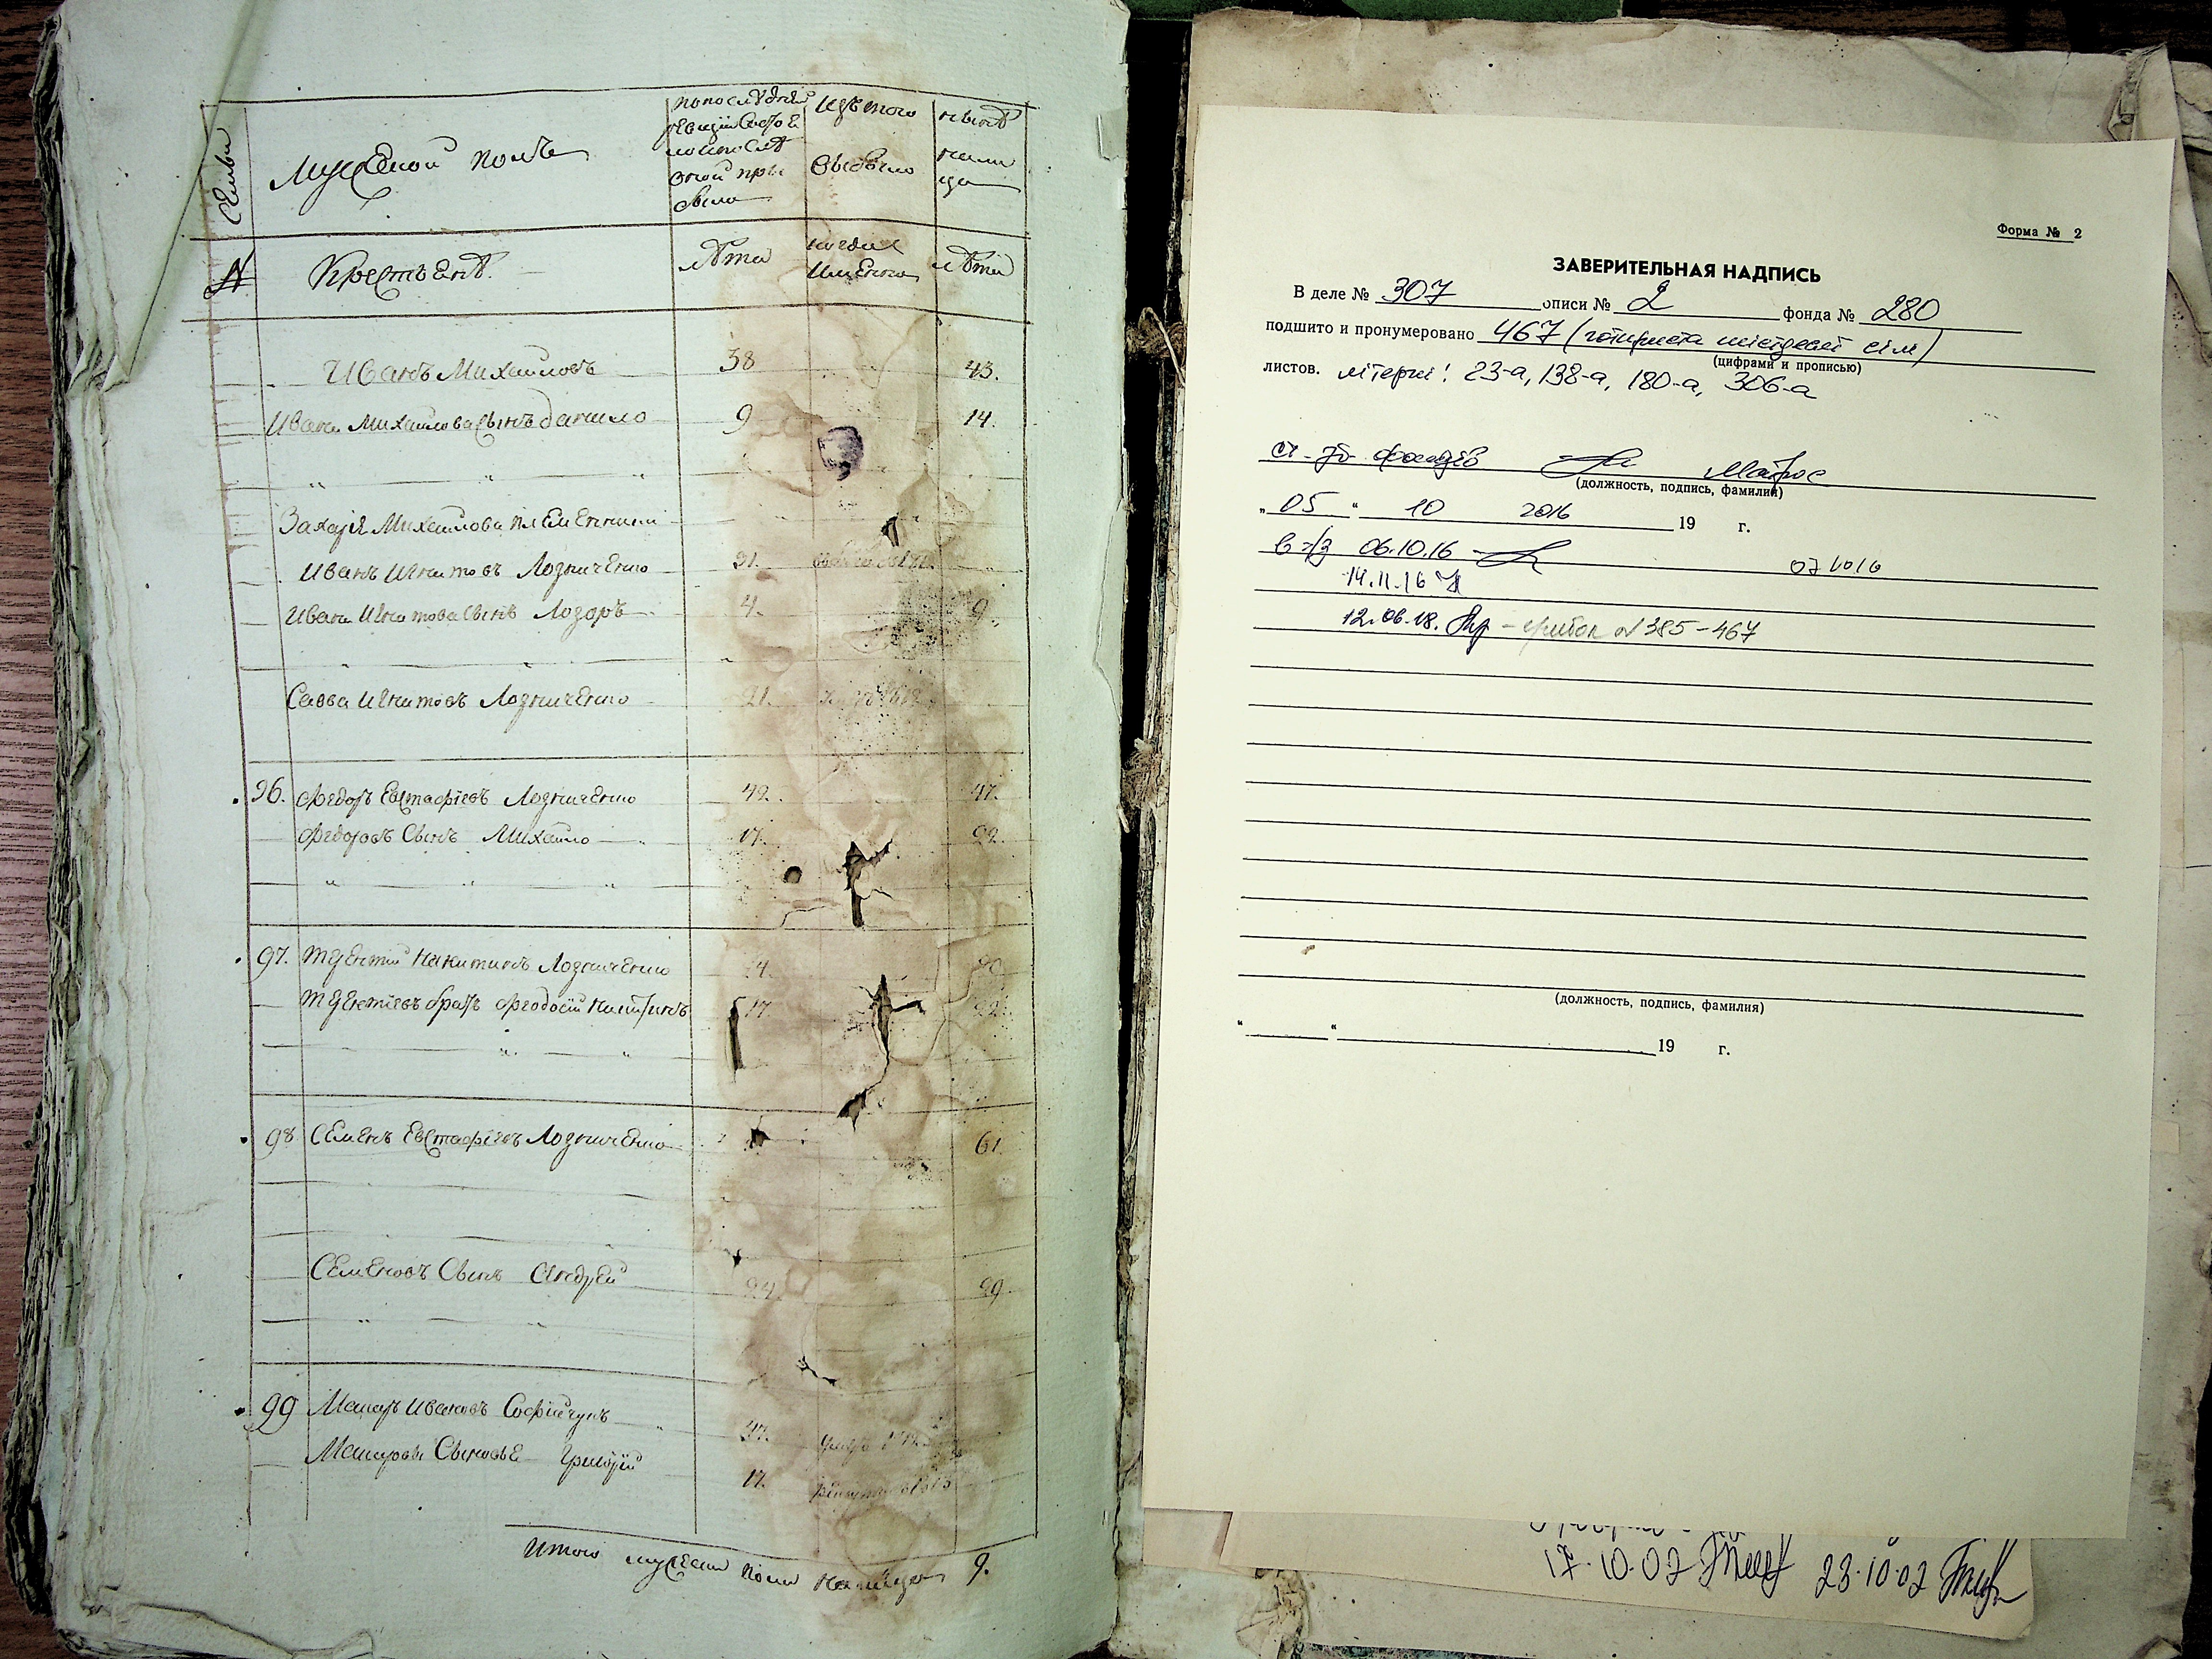 Семьи
Мужеской полъ
по последней
ревизiи состо
яло и после
оной при
было
Изъ того
выбыло
ныне
на ли
цо
№
Крестьяне.
лета
когда
именно
лета
Иванъ Михайловъ 38 43.
Ивана Михайлова сынъ данило 9 14.
Захарiя Михайлова племянники
Иванъ Игнатовъ Лозниченко 21.
Ивана Игнатова сынъ Лазоръ 4. 9.
Савва Игнатовъ Лозниченко 21.
96. Федоръ Евстафiевъ Лозниченко 42. 47.
Федоровъ Сынъ Михайло 17. 22.
97. Терентiй Никитинъ Лозниченко
Терентiевъ братъ Феодосiй Никитинъ 17 22.
98 Семенъ Евстафiевъ Лозниченко 61
Семеновъ Сынъ Андрей 24. 29.
99 Макаръ Ивановъ Софiйчукъ 47.
Макаровы Сыновья Григорiй 17.
Итого мужеска пола на лицо 9.
Форма № 2
ЗАВЕРИТЕЛЬНАЯ НАДПИСЬ
В деле № 307 описи № 2 фонда № 280
подшито и пронумеровано 467 (чотириста шістдесят сім)
(цифрами и прописью)
листов. літерні: 23-а, 138-а, 180-а, 306-а
ст. зб. фондів Матрос
(должность, подпись, фамилия)
„ 05 “ 10 2016 19 г.
06.10.16 071016
14.11.16
12.06.18. - грибок №385-467
(должность, подпись, фамилия)
“ “ 19 г.
17.10.02 23.10.02